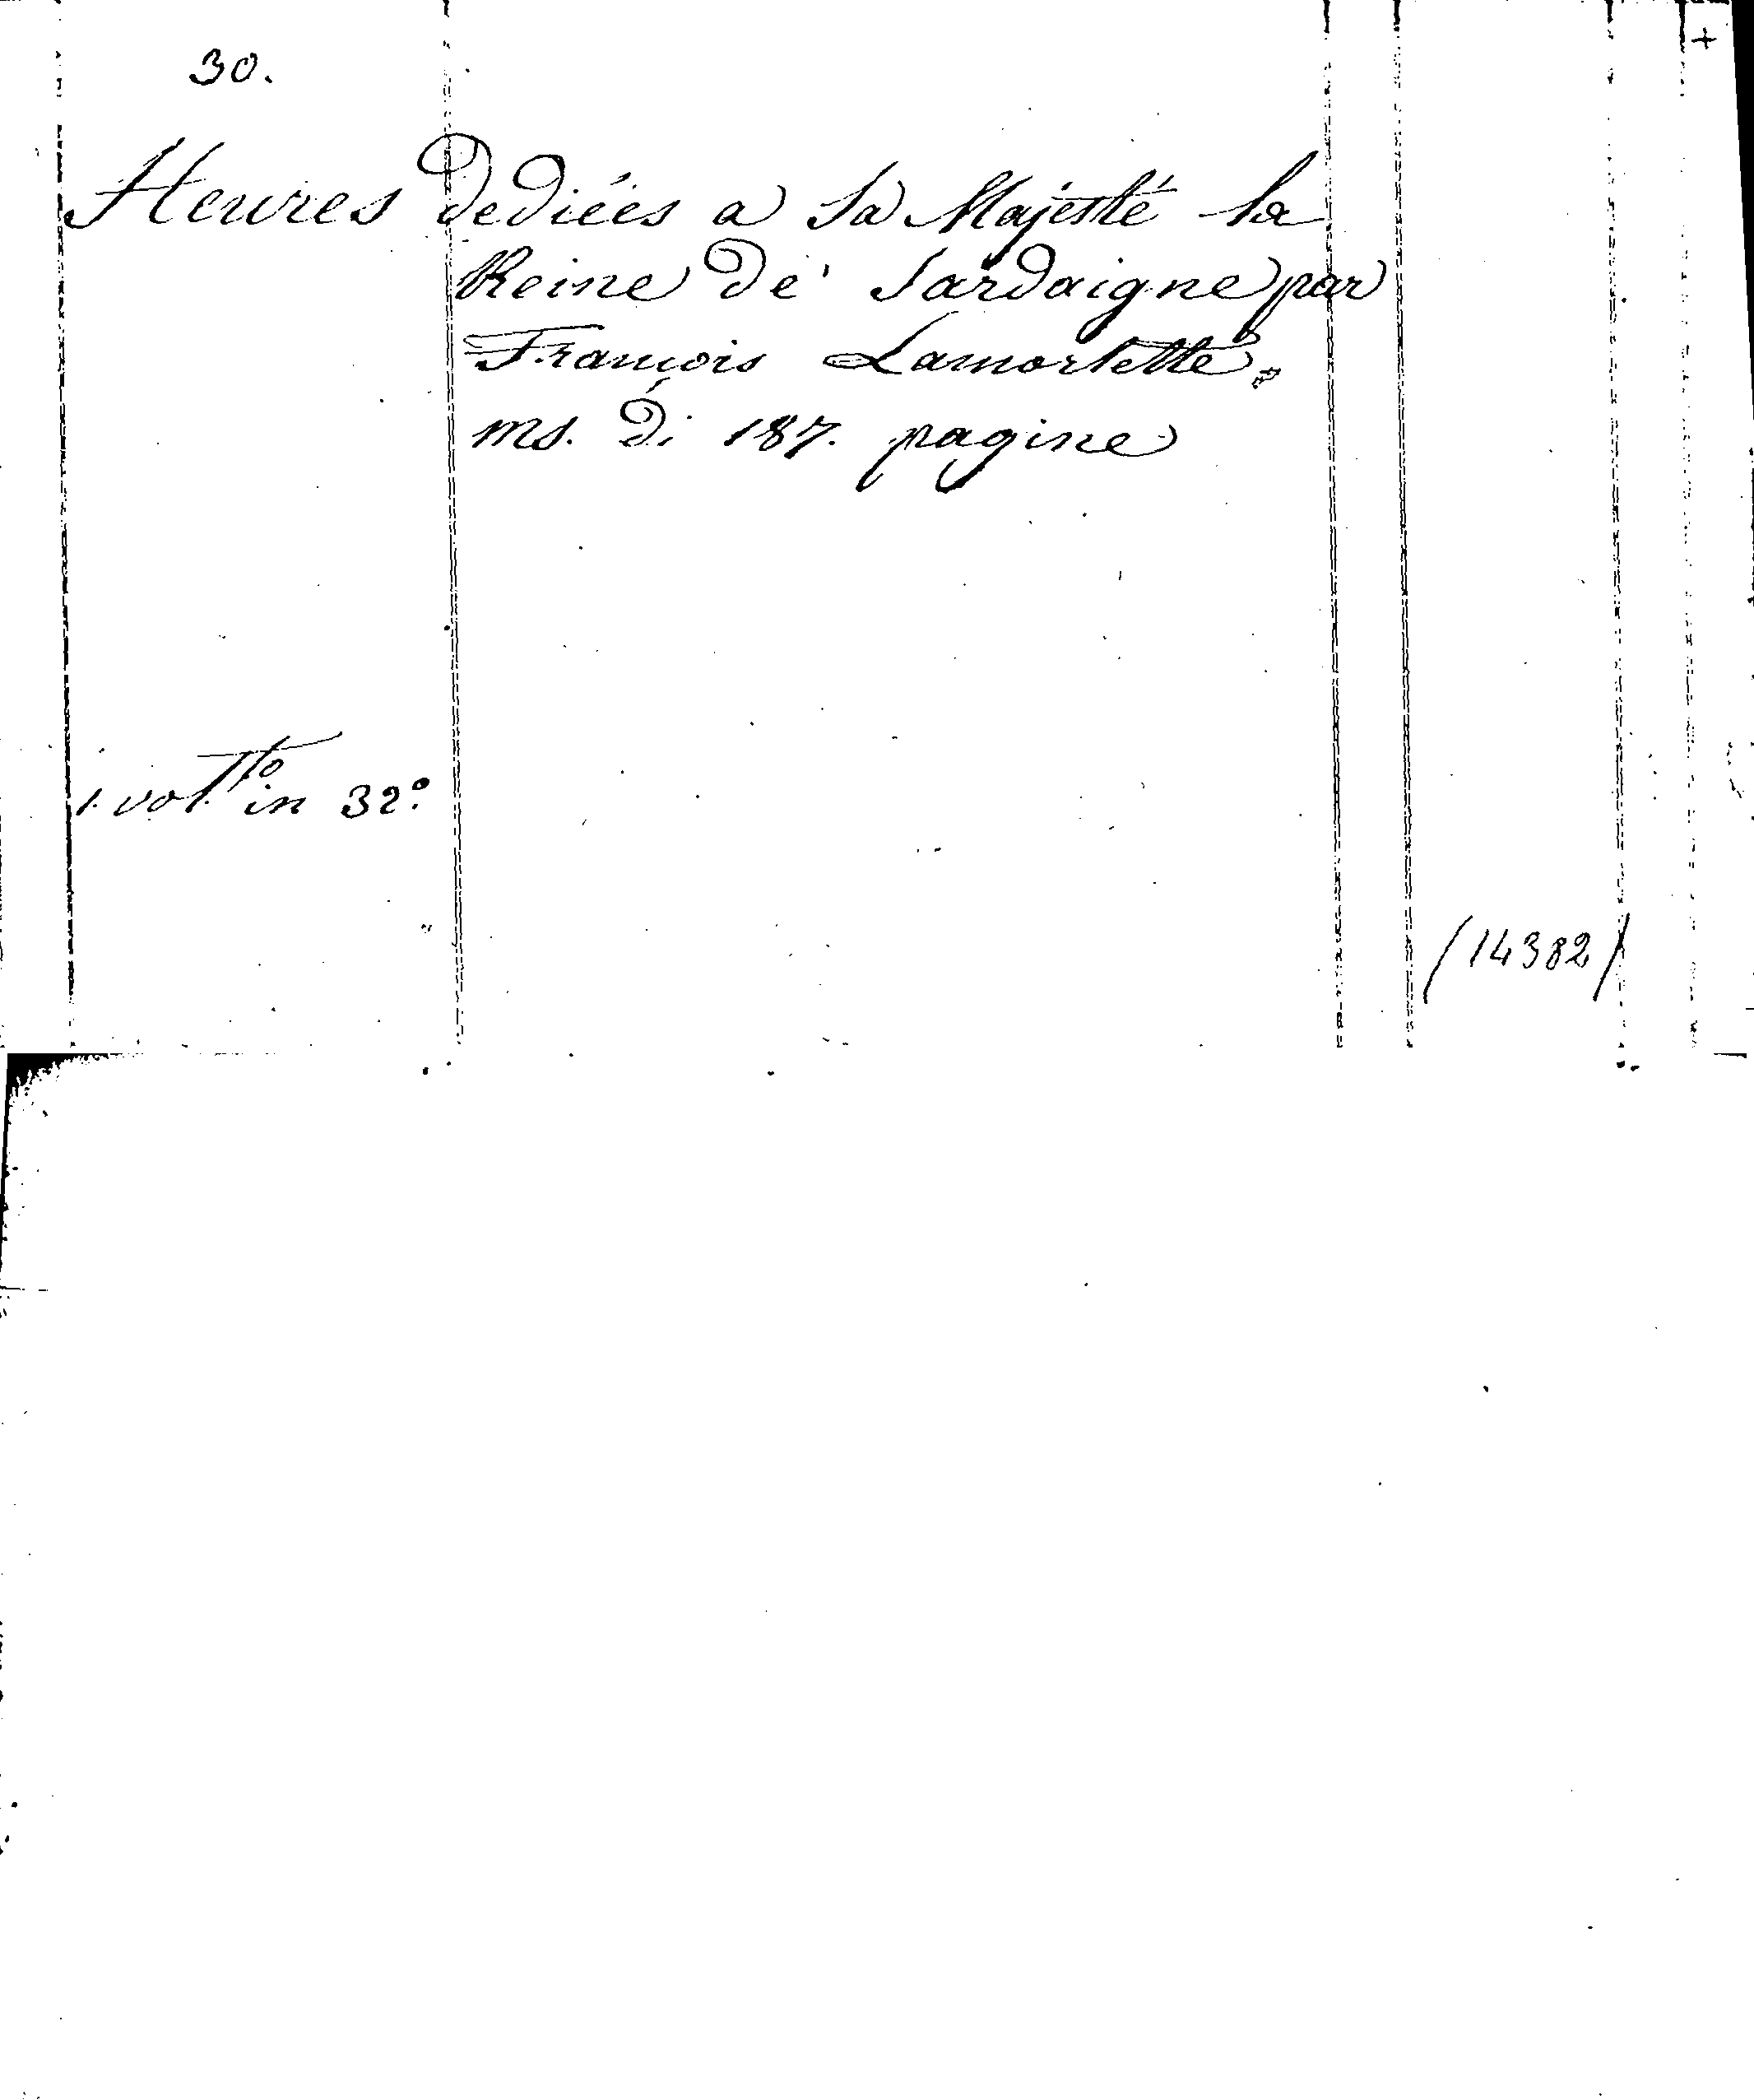 30. +
Heures dediées a Sa Majesté la
Reine de Sardaigne par
François Lamortette.
ms. di 187. pagine
1. vol.tto in 32.°
(14382)